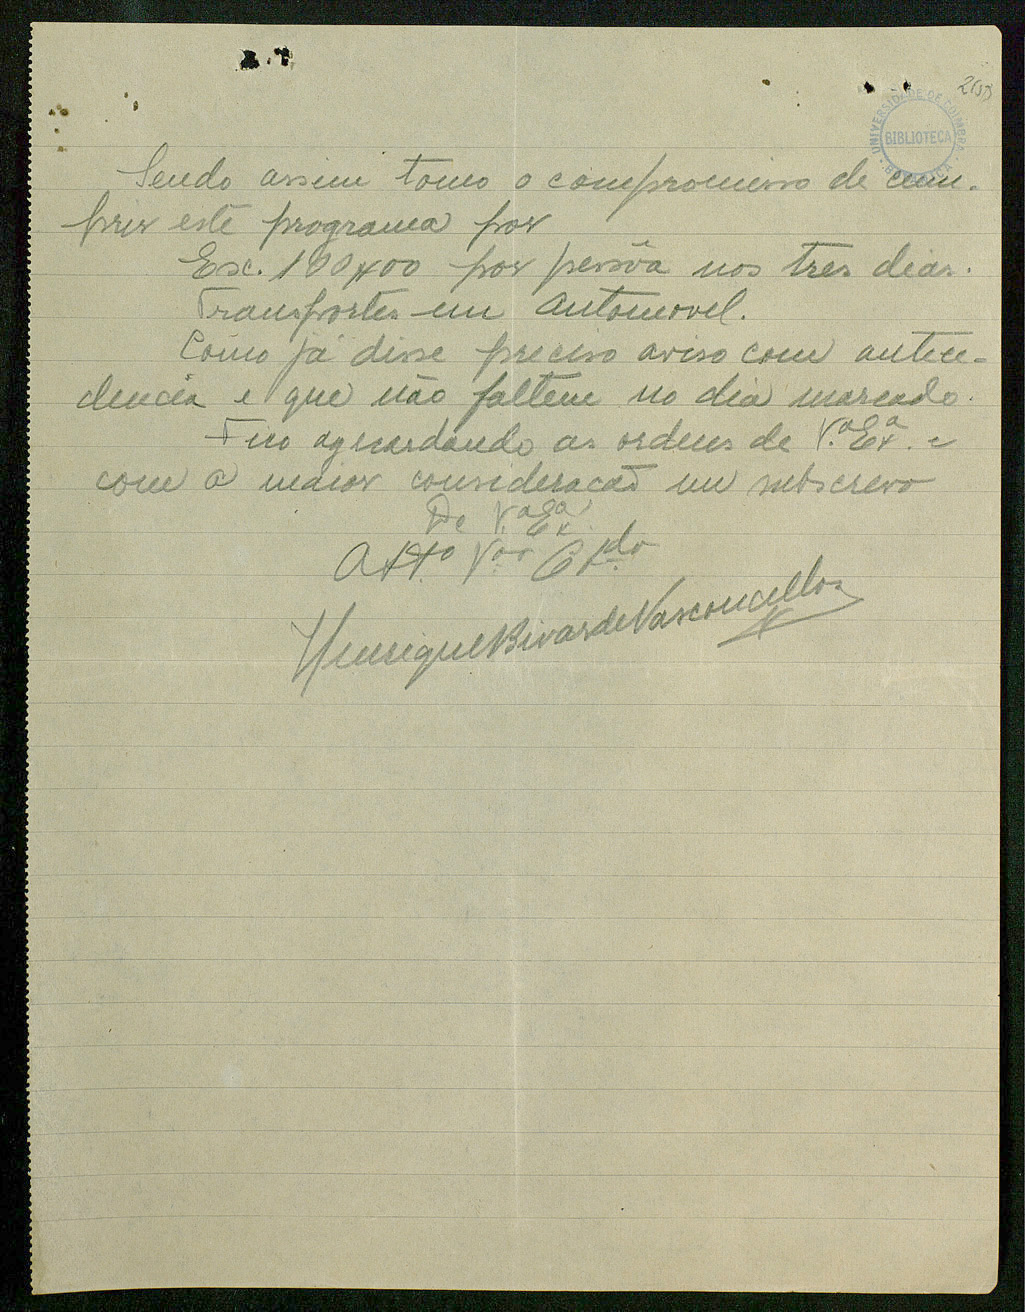 UNIVERSIDADE DE COIMBRA
BIBLIOTECA
BOTANICA
Sendo assim tomo o compromisso de cum-
prir este programa por
Esc. 100$00 por pessôa nos tres dias.
Transportes em automovel.
Como já disse preciso aviso com antece-
dencia e que não faltem no dia marcado.
Fico aguardando as ordens de V.ª Ex.ª e
com a maior consideração me subscrevo
De V.ª Ex.ª
Att.º V.ºr
Henrique Bivar de Vasconcellos